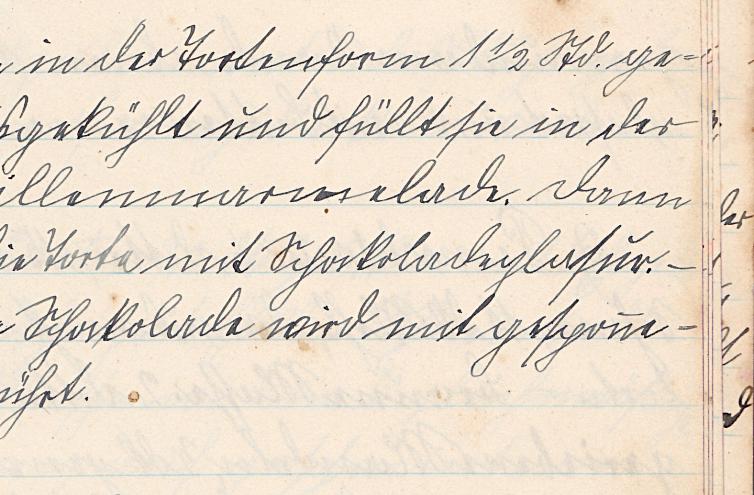 in der Tortenform 1 1/2 Std. ge-
sgekühlt und füllt sie in der
illenmarmelade. Dann
ie Torte mit Schokoladeglasur.-
Schokolade wird mit gespone-
ührt.
der